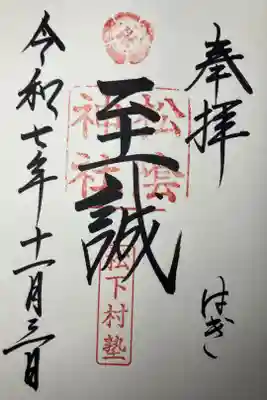 奉拝
はぎし
至誠
松陰
神社
松下村塾
令和七年十一月三日